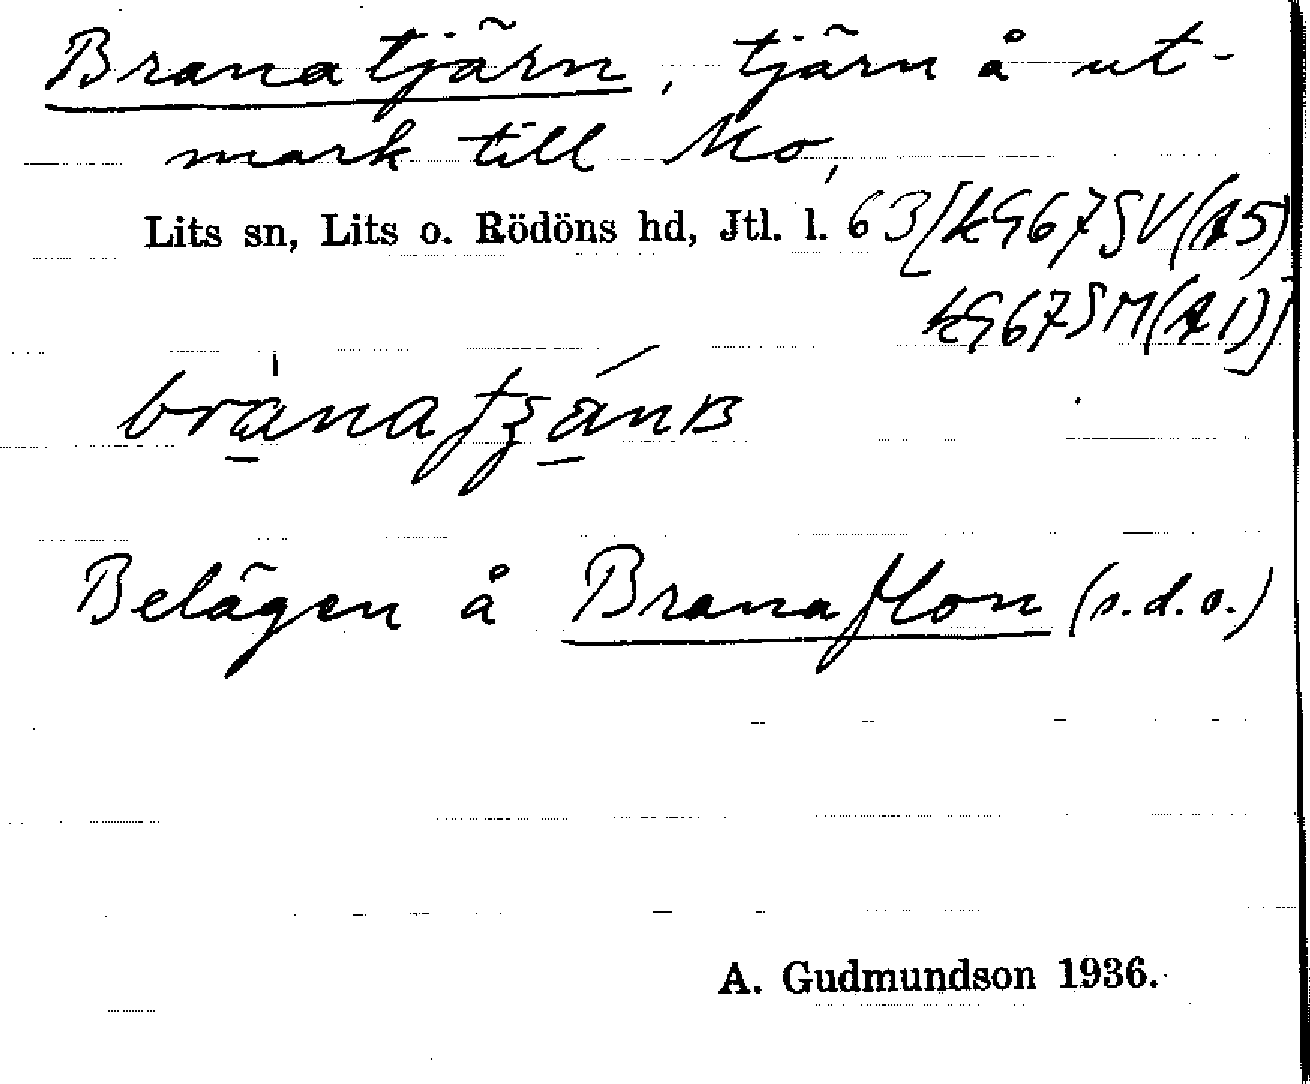 Branatjärn, tjärn å ut-
mark till Mo,
Lits sn, Lits o. Rödöns hd, Jtl. l. 63 [kG67SV(A5)
kG67SM(A1)]
Belägen å Branaflon (s.d.o.)
A. Gudmundson 1936.